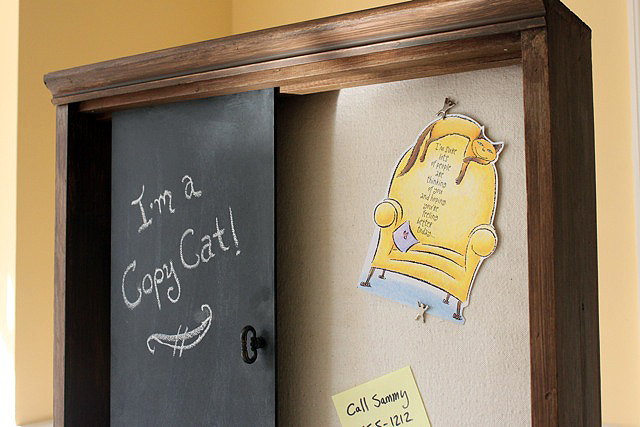 I'm a
Copy Cat!
I'm sure
lots
of people
are
thinking
of you
and hoping
you're
feeling
better
today...
Call Sammy
55-1212